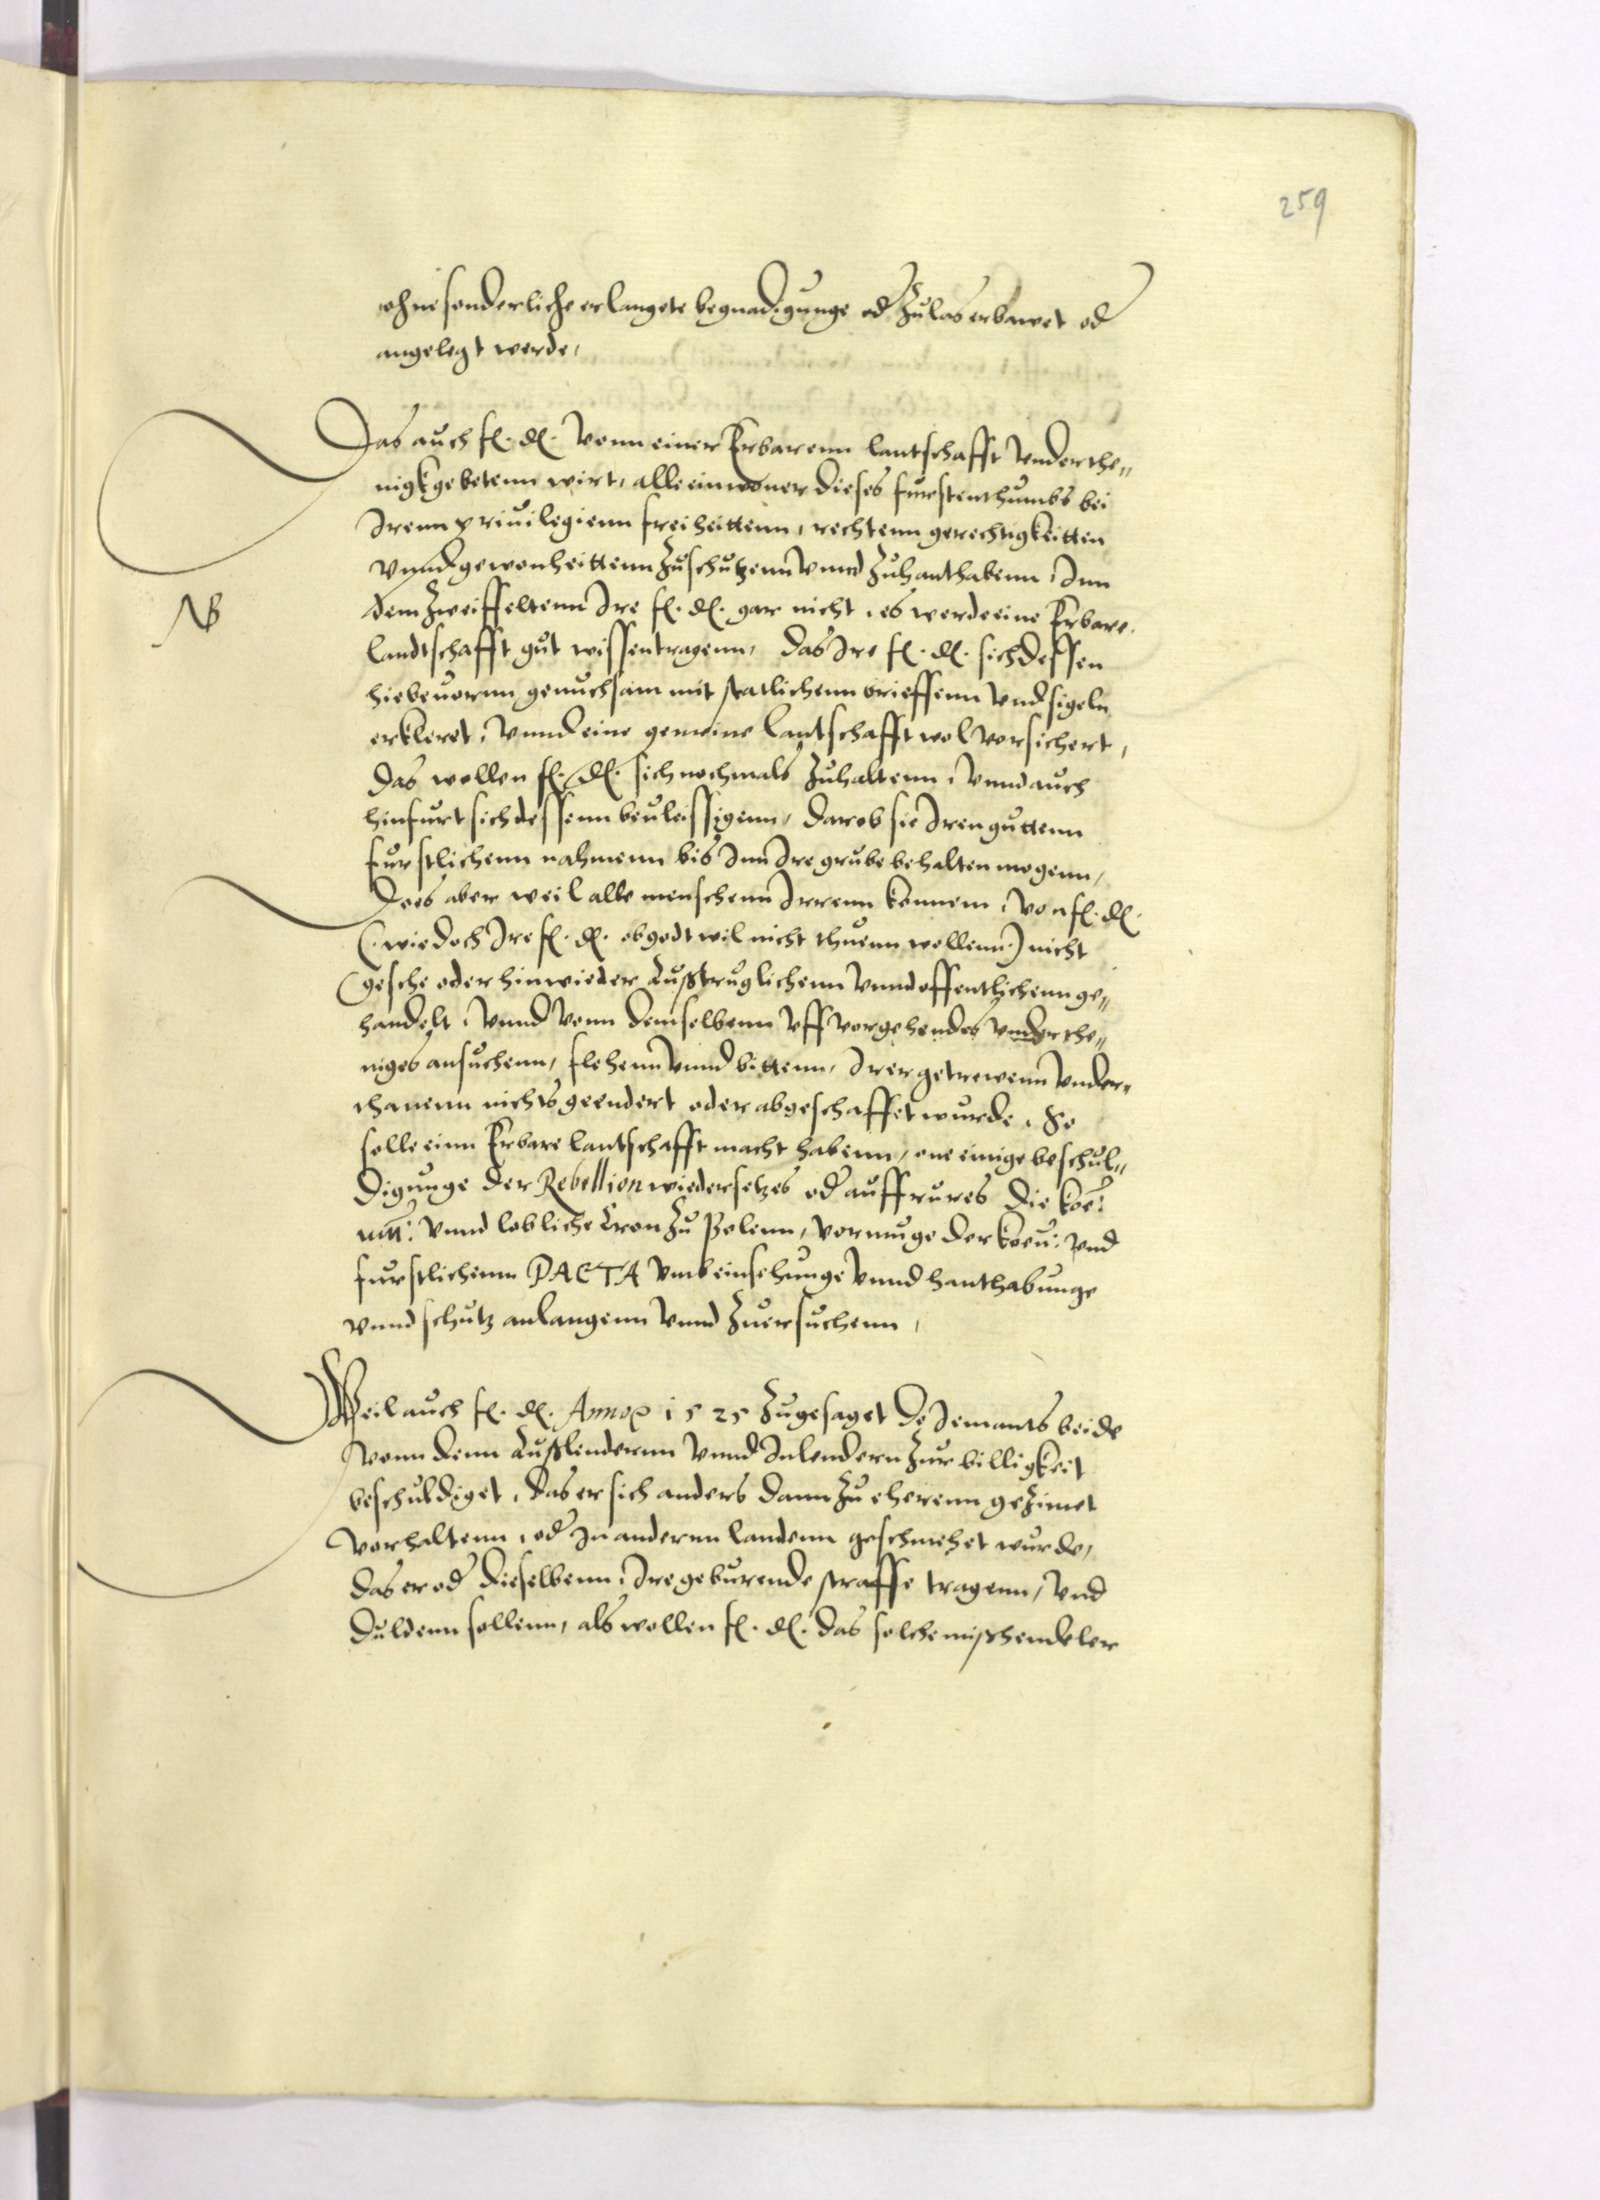 259
ohne sonderliche erlangete begnadigunge od zulas erbawet od
angelegt werde,
Das auch fl. dl. vonn einer Erbarenn lantschafft underthe„
nigk gebetenn wirt, alle einwoner dieses furstenthumbs bei
Irenn priuilegienn freiheittenn, rechtenn gerechtigkeitten
vnnd gewonheittenn zuschutzenn vnnd zuhanthabenn, Inn
dem zweiffeltenn Ire fl. dl. gar nicht, es werde eine Erbare
NB
landtschafft gut wissen tragenn, das Ire fl. dl. sich dessen
hiebeuornn genuchsam mit statlichenn brieffenn vnd sigeln
erkleret, vnnd eine gemeine lantschafft wol vorsichert,
das wollen fl. dl. sich nochmals zuhaltenn, vnnd auch
hinfurt sich dessenn beuleissigenn, darob sie Iren guttenn
furstlichenn nahmenn bis Inn Ire grube behalten mogenn,
Do es aber weil alle menschenn Irrenn konnenn, von fl. dl.
(wie doch Ire fl. dl. ob godt wil nicht thuenn wollenn) nicht
gesche oder hinwieder außtruglichenn vnnd offentlichenn ge„
handelt, vnnd vonn demselbenn vff vorgehendes vnderthe„
niges ansuchenn, flehenn vnnd bittenn, Irer getrewenn vnder„
thanenn nichts geendert oder abgeschaffet wurde, So
solle einn Erbare lantschafft macht habenn, one einige beschul„
digunge der Rebellion wiedersetzes od auffrures die koe:
mt: vnnd lobliche Cron zu Polenn, vormuge der koen: vnd
furstlichenn PACTA vmb einsehunge vnnd hanthabunge
vnnd schutz anlangenn vnnd zuersuchenn,
Weil auch fl. dl. Anno 1525 zugesaget do Jemants beide
vonn denn außlendernn vnnd Inlendern zur billigkeit
beschuldiget, das er sich anders dann zu eherenn gezimet
vorhaltenn, od In anderenn landenn geschmehet wurde,
das er od dieselbenn, Ire geburende straffe tragenn, vnd
duldenn sollenn, als wollen fl. dl. das solche mißhendeler